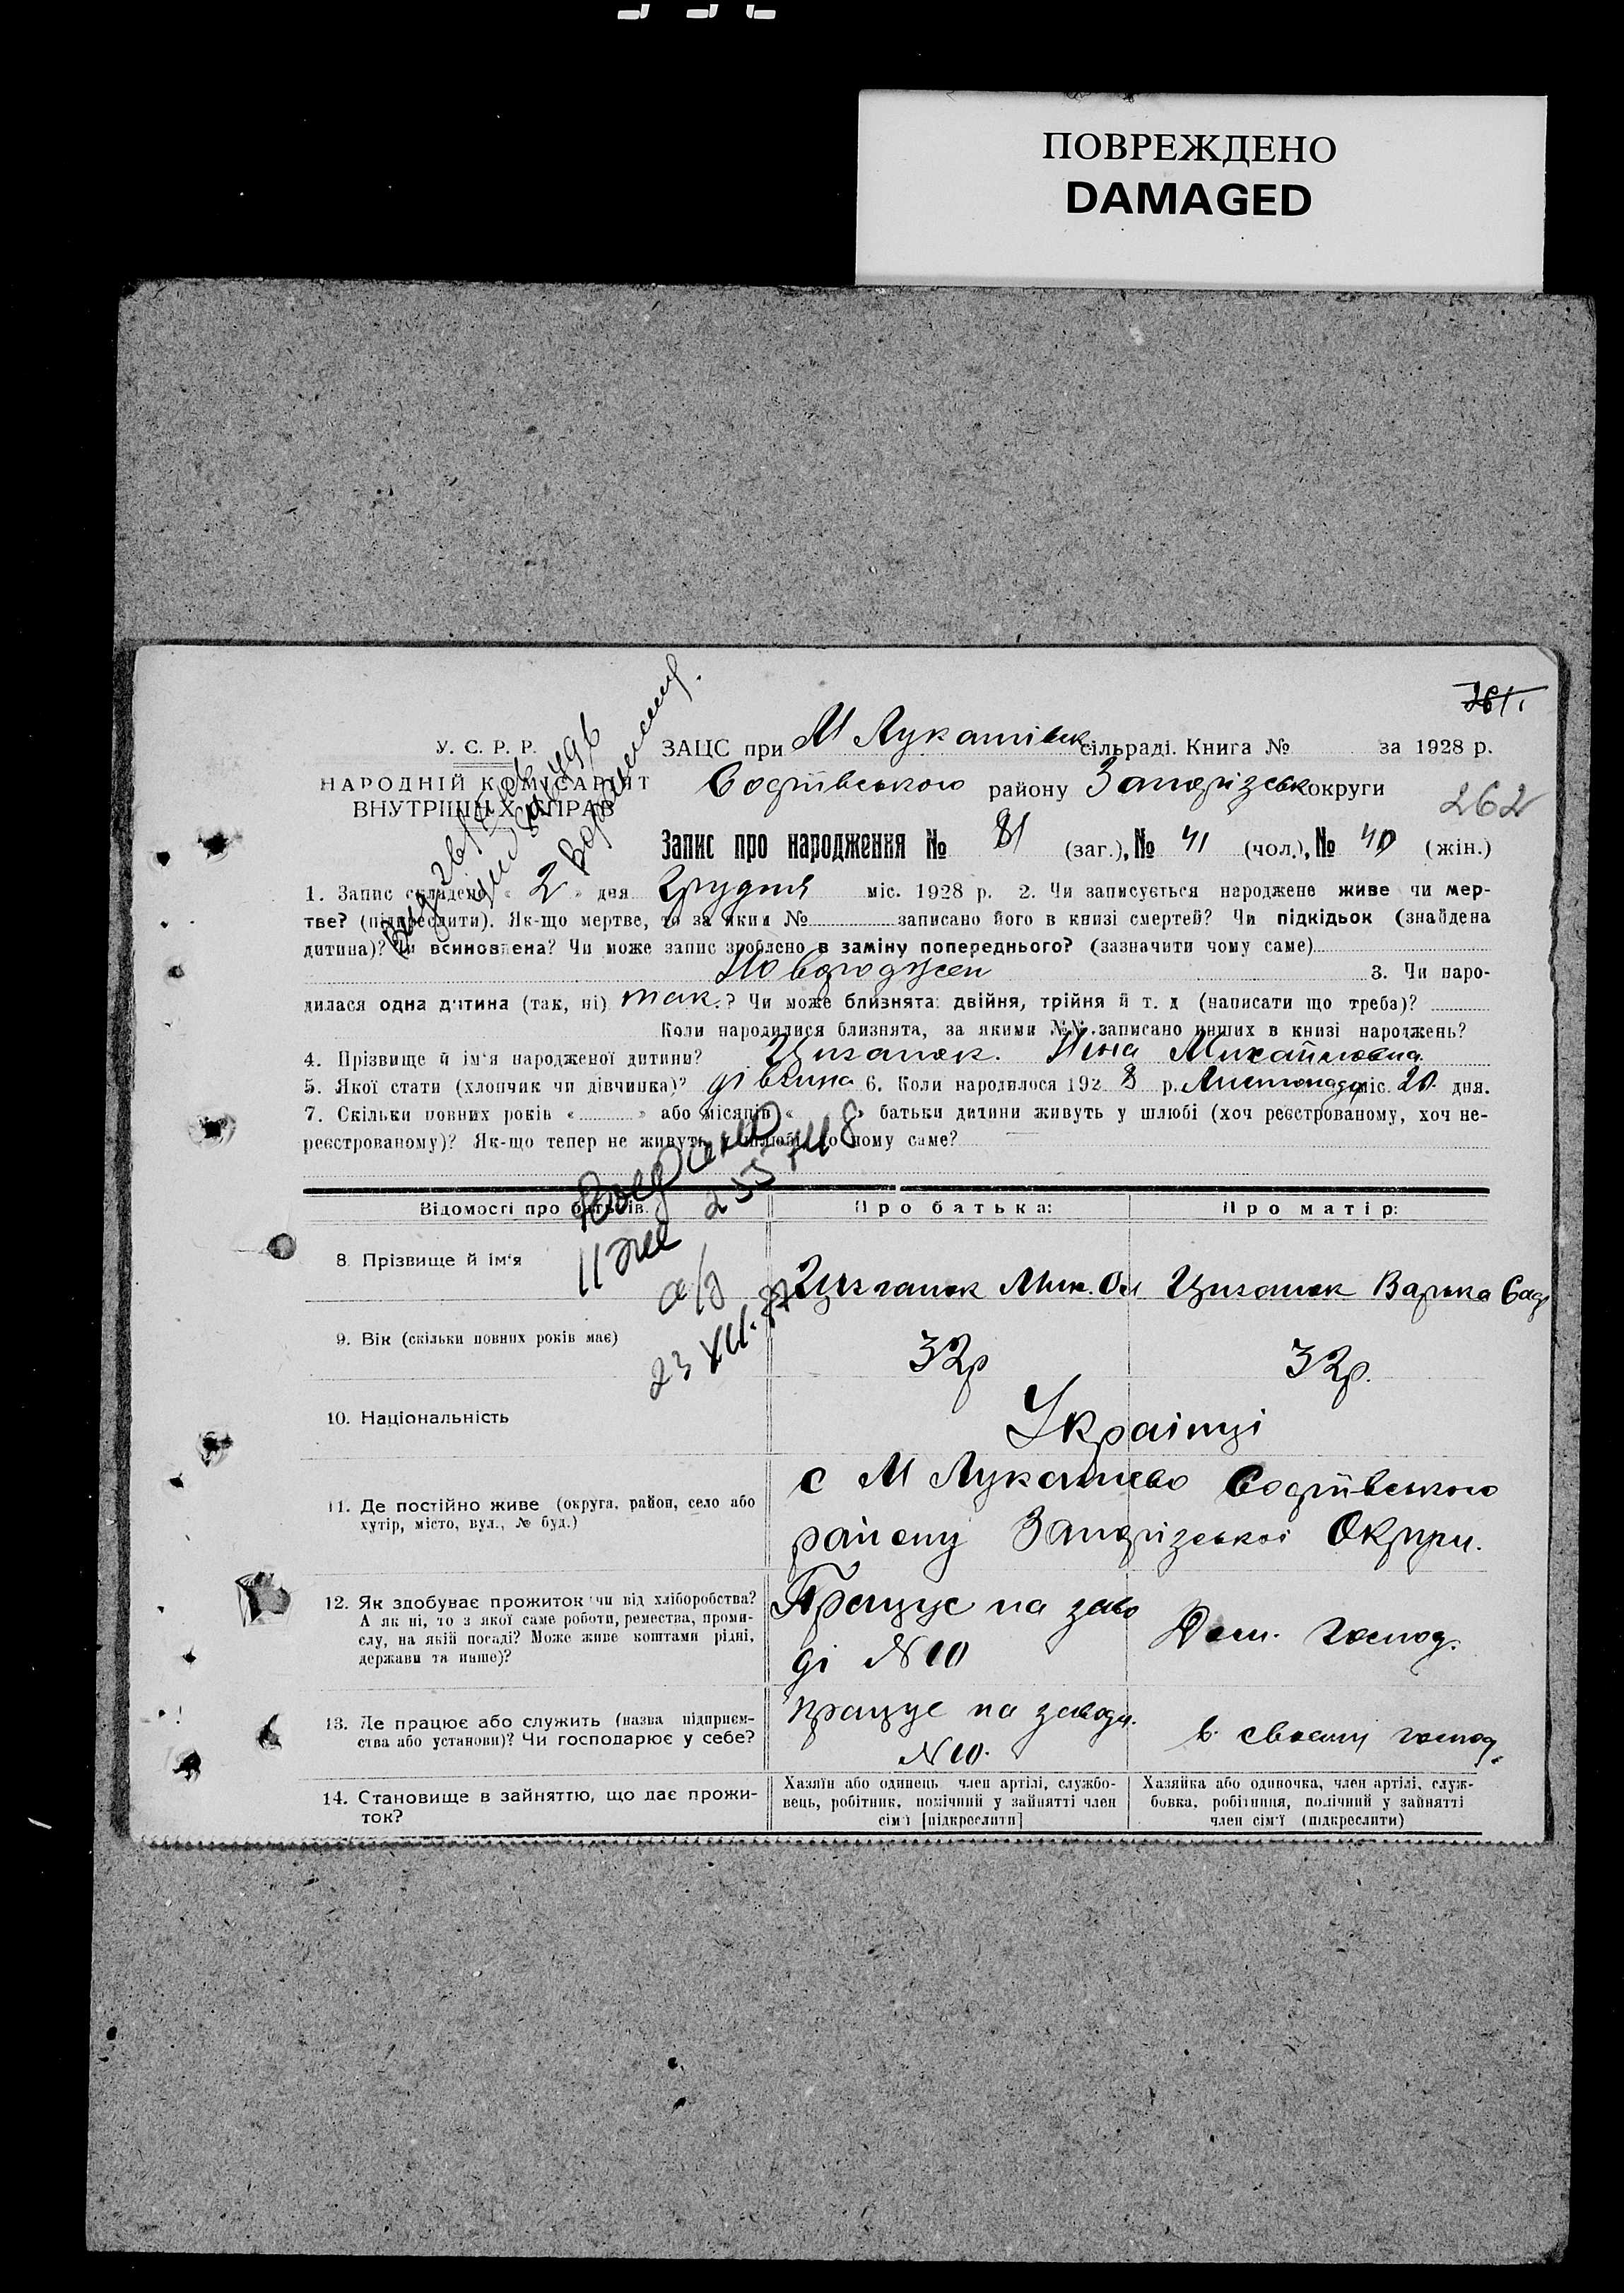 ПОВРЕЖДЕНО
DAMAGED
261
У. С. Р. Р.
НАРОДНІЙ КОМІСАРІЯТ
ВНУТРІШНІХ СПРАВ
ЗАЦС при М Лукашівск сільраді. Книга № за 1928 р.
Софіївського району Запорізськ округи
262
Запис про народження № 81 (заг.), № 41 (чол.), № 40 (жін.)
1. Запис складено « 2 » дня Грудня міс. 1928 р. 2. Чи записується народжене живе чи мер-
тве? (підкреслити). Як-що мертве, то за яким № записано його в книзі смертей? Чи підкідьок (знайдена
дитина)? Чи всиновлена? Чи може запис зроблено в заміну попереднього? (зазначити чому саме)
Новороджен 3. Чи наро-
дилася одна дитина (так, ні) так.? Чи може близнята: двійня, трійня й т. д (написати що треба)?
Коли народилися близнята, за якими №№ записано инших в книзі народжень?
4. Прізвище й ім'я народженої дитини? Циганок. Нина Михайловна.
5. Якої стати (хлопчик чи дівчинка)? дівчина 6. Коли народилося 192 8 р. Листопаду міс. 20 дня.
7. Скільки повних років « » або місяців « » батьки дитини живуть у шлюбі (хоч реєстрованому, хоч не-
реєстрованому)? Як-що тепер не живуть у шлюбі, то чому саме?
255748
23 XII.
Відомості про батьків.
Про батька:
Про матір:
8. Прізвище й ім'я
Циганок Мих. Ол
Циганок Варька
9. Вік (скільки повних років має)
32р
32р.
10. Національність
Українці
11. Де постійно живе (округа, район, село або
хутір, місто, вул., № буд.)
с М Лукашево Софіївського
району Запорізської Округи.
12. Як здобуває прожиток чи від хліборобства?
А як ні, то з якої саме роботи, ремества, проми-
слу, на якій посаді? Може живе коштами рідні,
держави та инше)?
Працує на заво
ді N 10
Дом. господ.
13. Де працює або служить (назва підприєм-
ства або установи)? Чи господарює у себе?
працує на заводи.
N 10.
в. своєму господ.
14. Становище в зайняттю, що дає прожи-
ток?
Хазяїн або одинець член артілі, службо-
вець, робітник, помічний у зайнятті член
сім'ї [підкреслити]
Хазяйка або одиночка, член артілі, служ-
бовка, робітниця, помічний у зайнятті
член сім'ї (підкреслити)